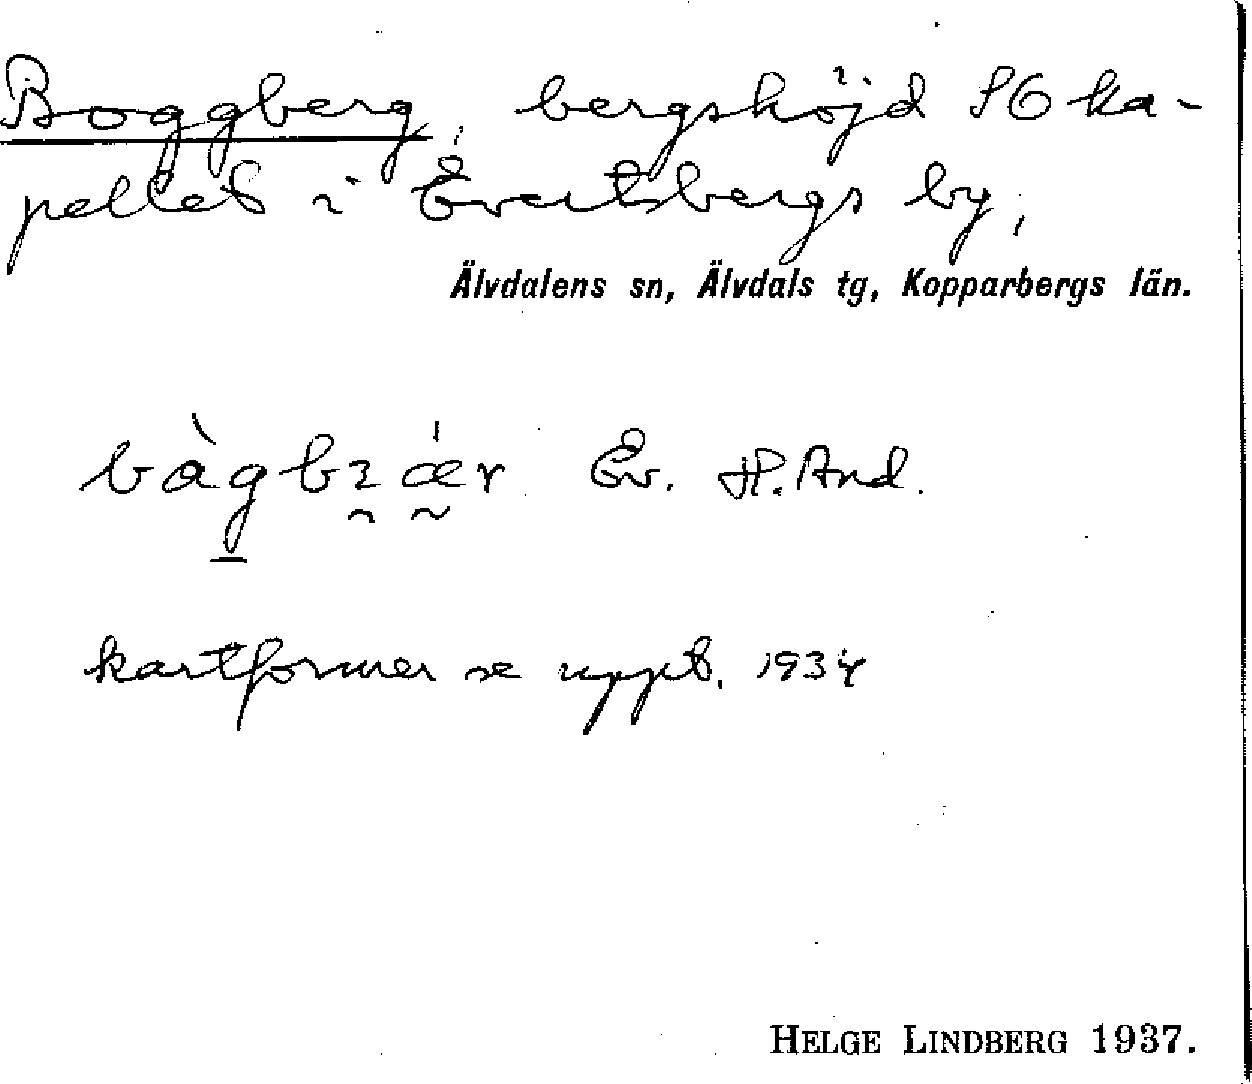 Boggberg, bergshöjd SO ka-
pellet i Evertsbergs by,
Älvdalens sn, Älvdals tg, Kopparbergs län.
Ev. H. And.
kartformer se uppt. 1934
HELGE LINDBERG 1937.